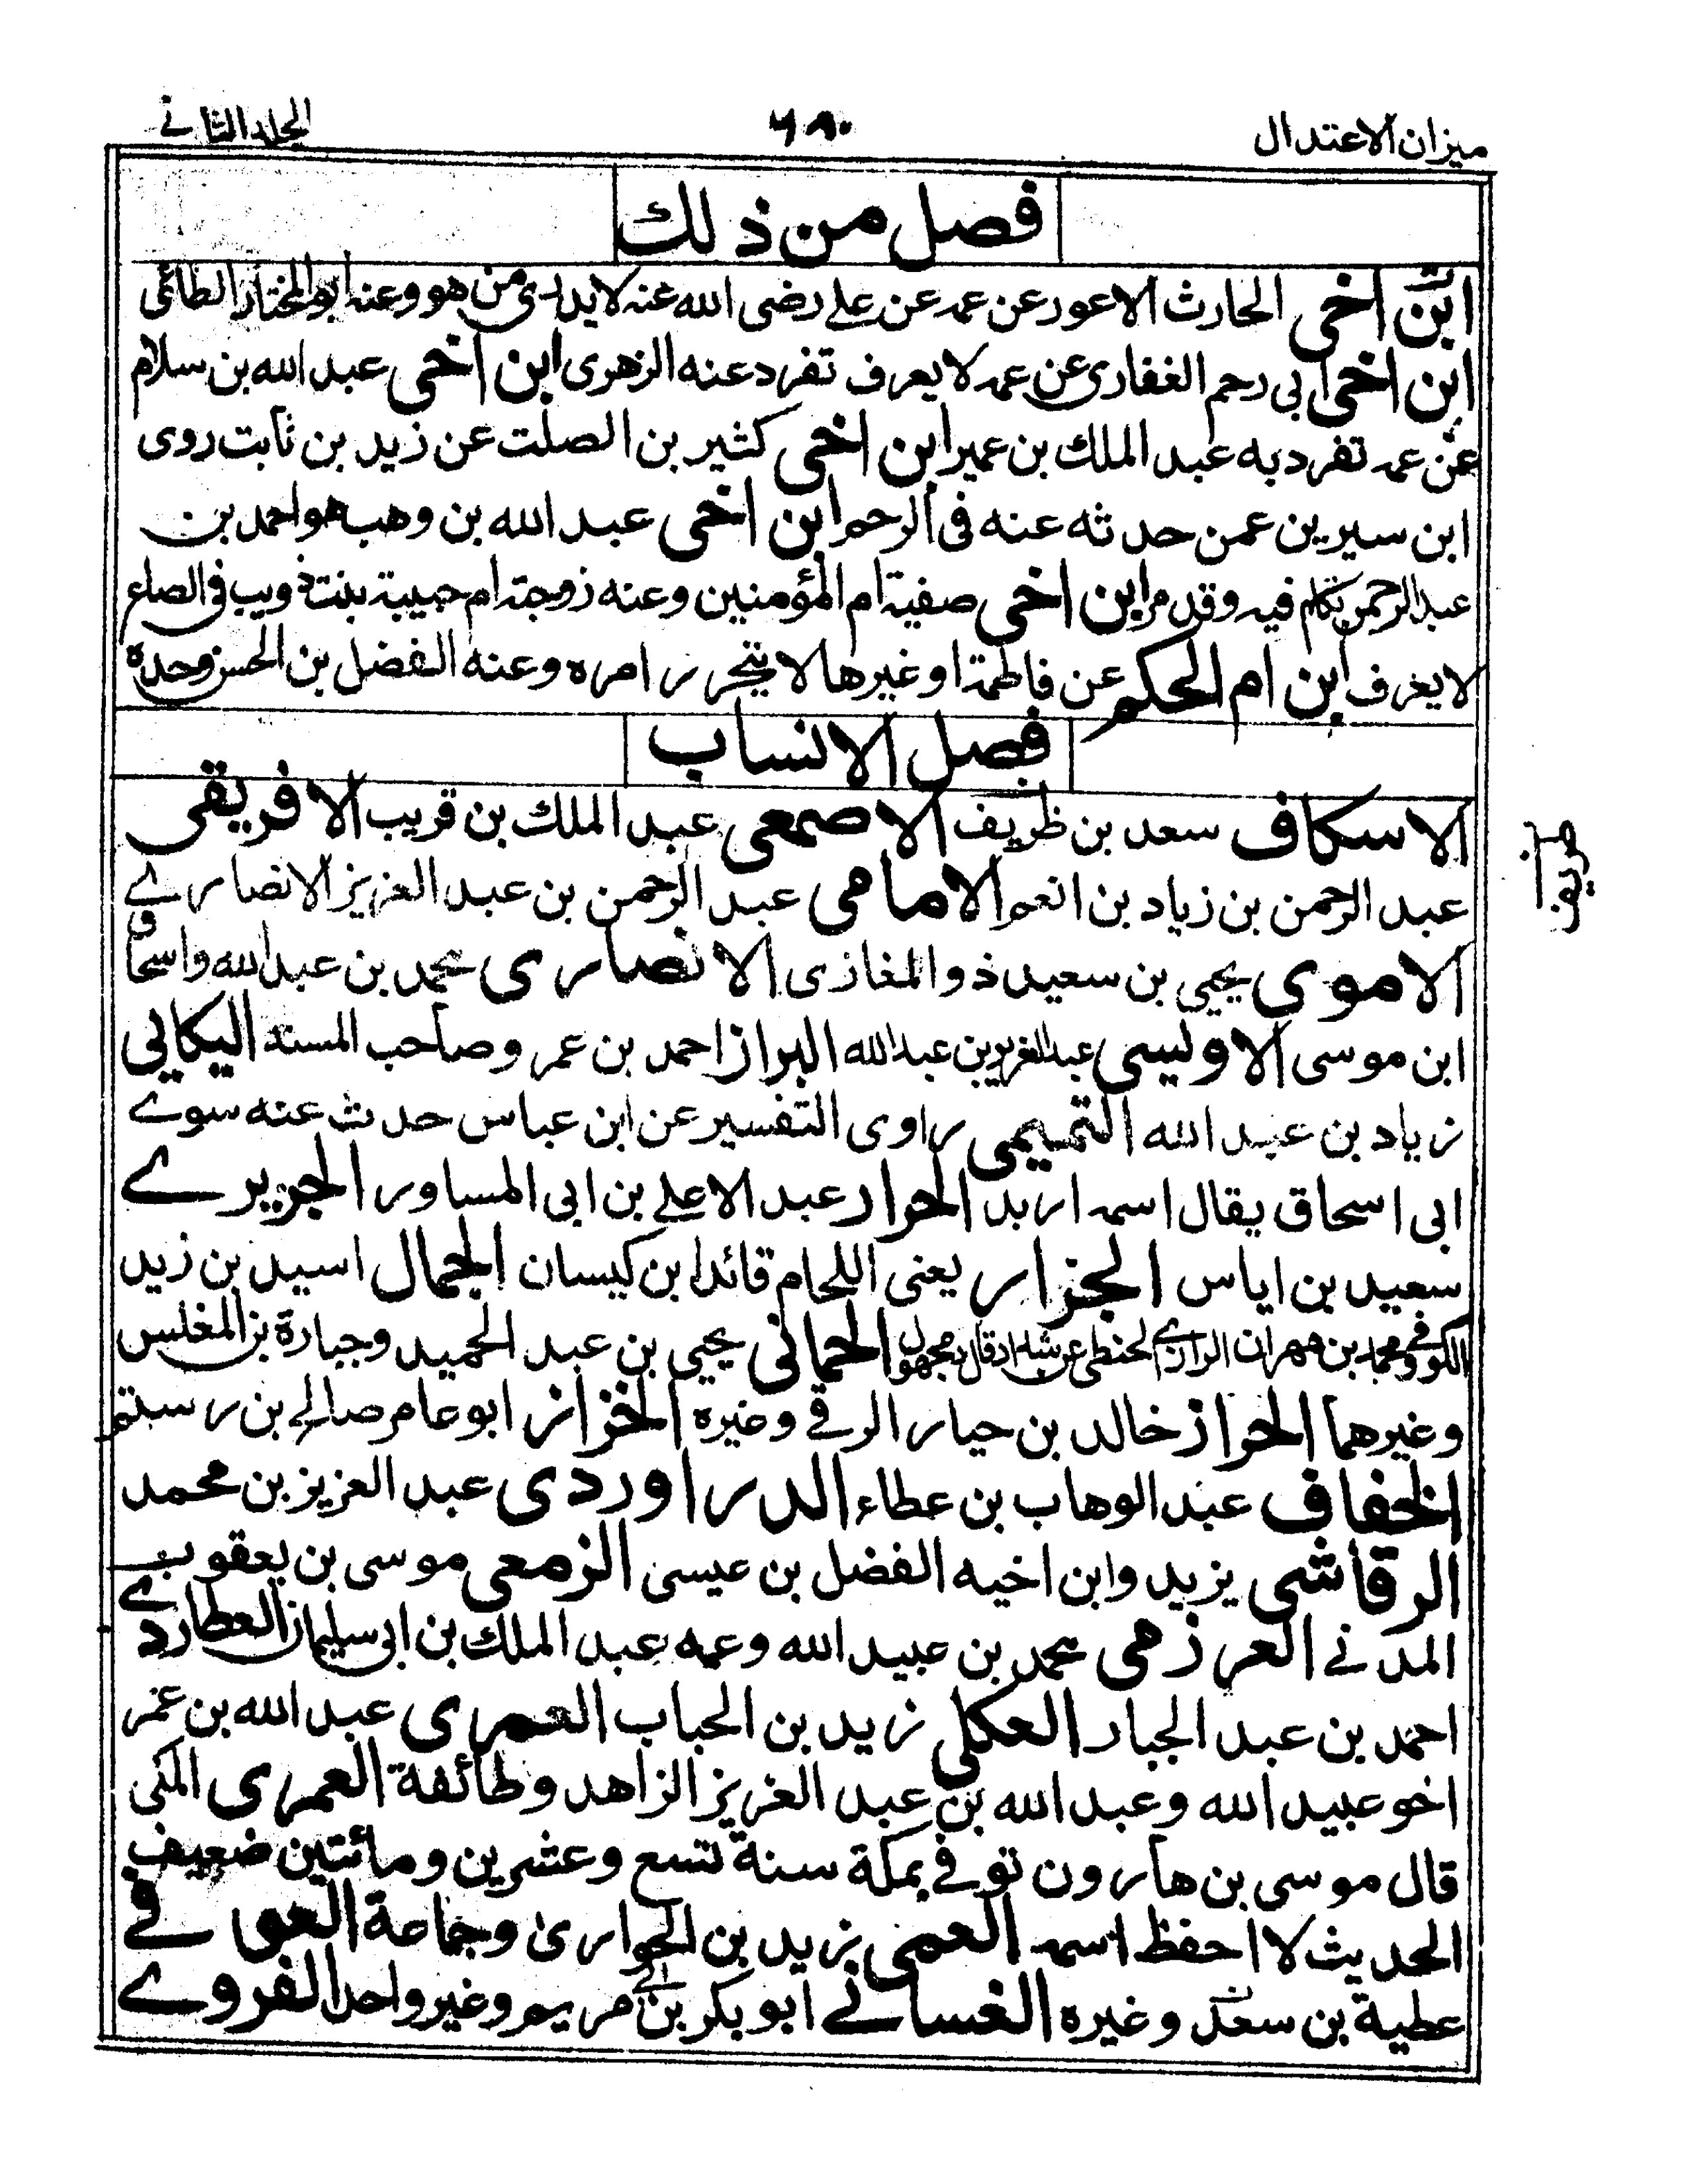 ميزان الاعتدال
٦٨٠
الجلد الثانے
فصل من ذلك
ابن اخى الحارث الاعور عن عمه عن علے رضى الله عنه لا يدرى من هو وعنه ابو المختار الطائى
ابن اخى ابي رحم الغفارى عن عمه لا يعرف تفرد عنه الزهرى ابن اخى عبد الله بن سلام
عن عمه تفرد به عبد الملك بن عمير ابن اخى كثير بن الصلت عن زيد بن ثابت روى
ابن سيرين عمن حدثه عنه فى الرجم ابن اخى عبد الله بن وهب هو احمد بن
عبد الرحمن تكلم فيه وقد مر ابن اخى صفية ام المؤمنين وعنه زوجته ام حبيبة بنت ذويب فى الصاع
لا يعرف ابن ام الحكم عن فاطمة او غيرها لا يتحرر امره وعنه الفضل بن الحسن وحده
فصل الانساب
الاسكاف سعد بن ظريف الاصمعى عبد الملك بن قريب الافريقى
عبد الرحمن بن زياد بن انعم الامامى عبد الرحمن بن عبد العزيز الانصارے
الاموى يحيى بن سعيد ذو المغازى الانصارى محمد بن عبد الله واسحاق
ابن موسى الاوليسى عبد العزيز بن عبد الله البراز احمد بن عمر وصاحب المسند البكائي
زياد بن عبد الله التميمى راوى التفسير عن ابن عباس حدث عنه سوے
ابى اسحاق يقال اسمه اربد الحوار عبد الاعلے بن ابى المساور الجريرے
سعيد بن اياس الجزار يعنى اللحام قائد ابن كيسان الجمال اسيد بن زيد
الكوفے ومحمد بن مهران الرازے الحنطى عن قال مجهول الحمانى يحيى بن عبد الحميد وجبارة بن المغلس
وغيرهما الحواز خالد بن حيار الرقے وغيره الخزاز ابو عامر صالح بن رستم
الخفاف عبد الوهاب بن عطاء الدراوردى عبد العزيز بن محمد
الرقاشى يزيد وابن اخيه الفضل بن عيسى الزمعى موسى بن يعقوب
المدنے العرزمى محمد بن عبيد الله وعمه عبد الملك بن ابى سليمان العطاردے
احمد بن عبد الجبار العكلى زيد بن الحباب العمرى عبد الله بن عمر
اخو عبيد الله وعبد الله بن عبد العزيز الزاهد وطائفة العمرى المكى
قال موسى بن هارون توفے بمكة سنة تسع وعشرين ومائتين ضعيف
الحديث لا احفظ اسمه العمى زيد بن الحوارى وجماعة العوفے
عطية بن سعد وغيره الغسانے ابو بكر بن ابے مريم وغير واحد الفروے